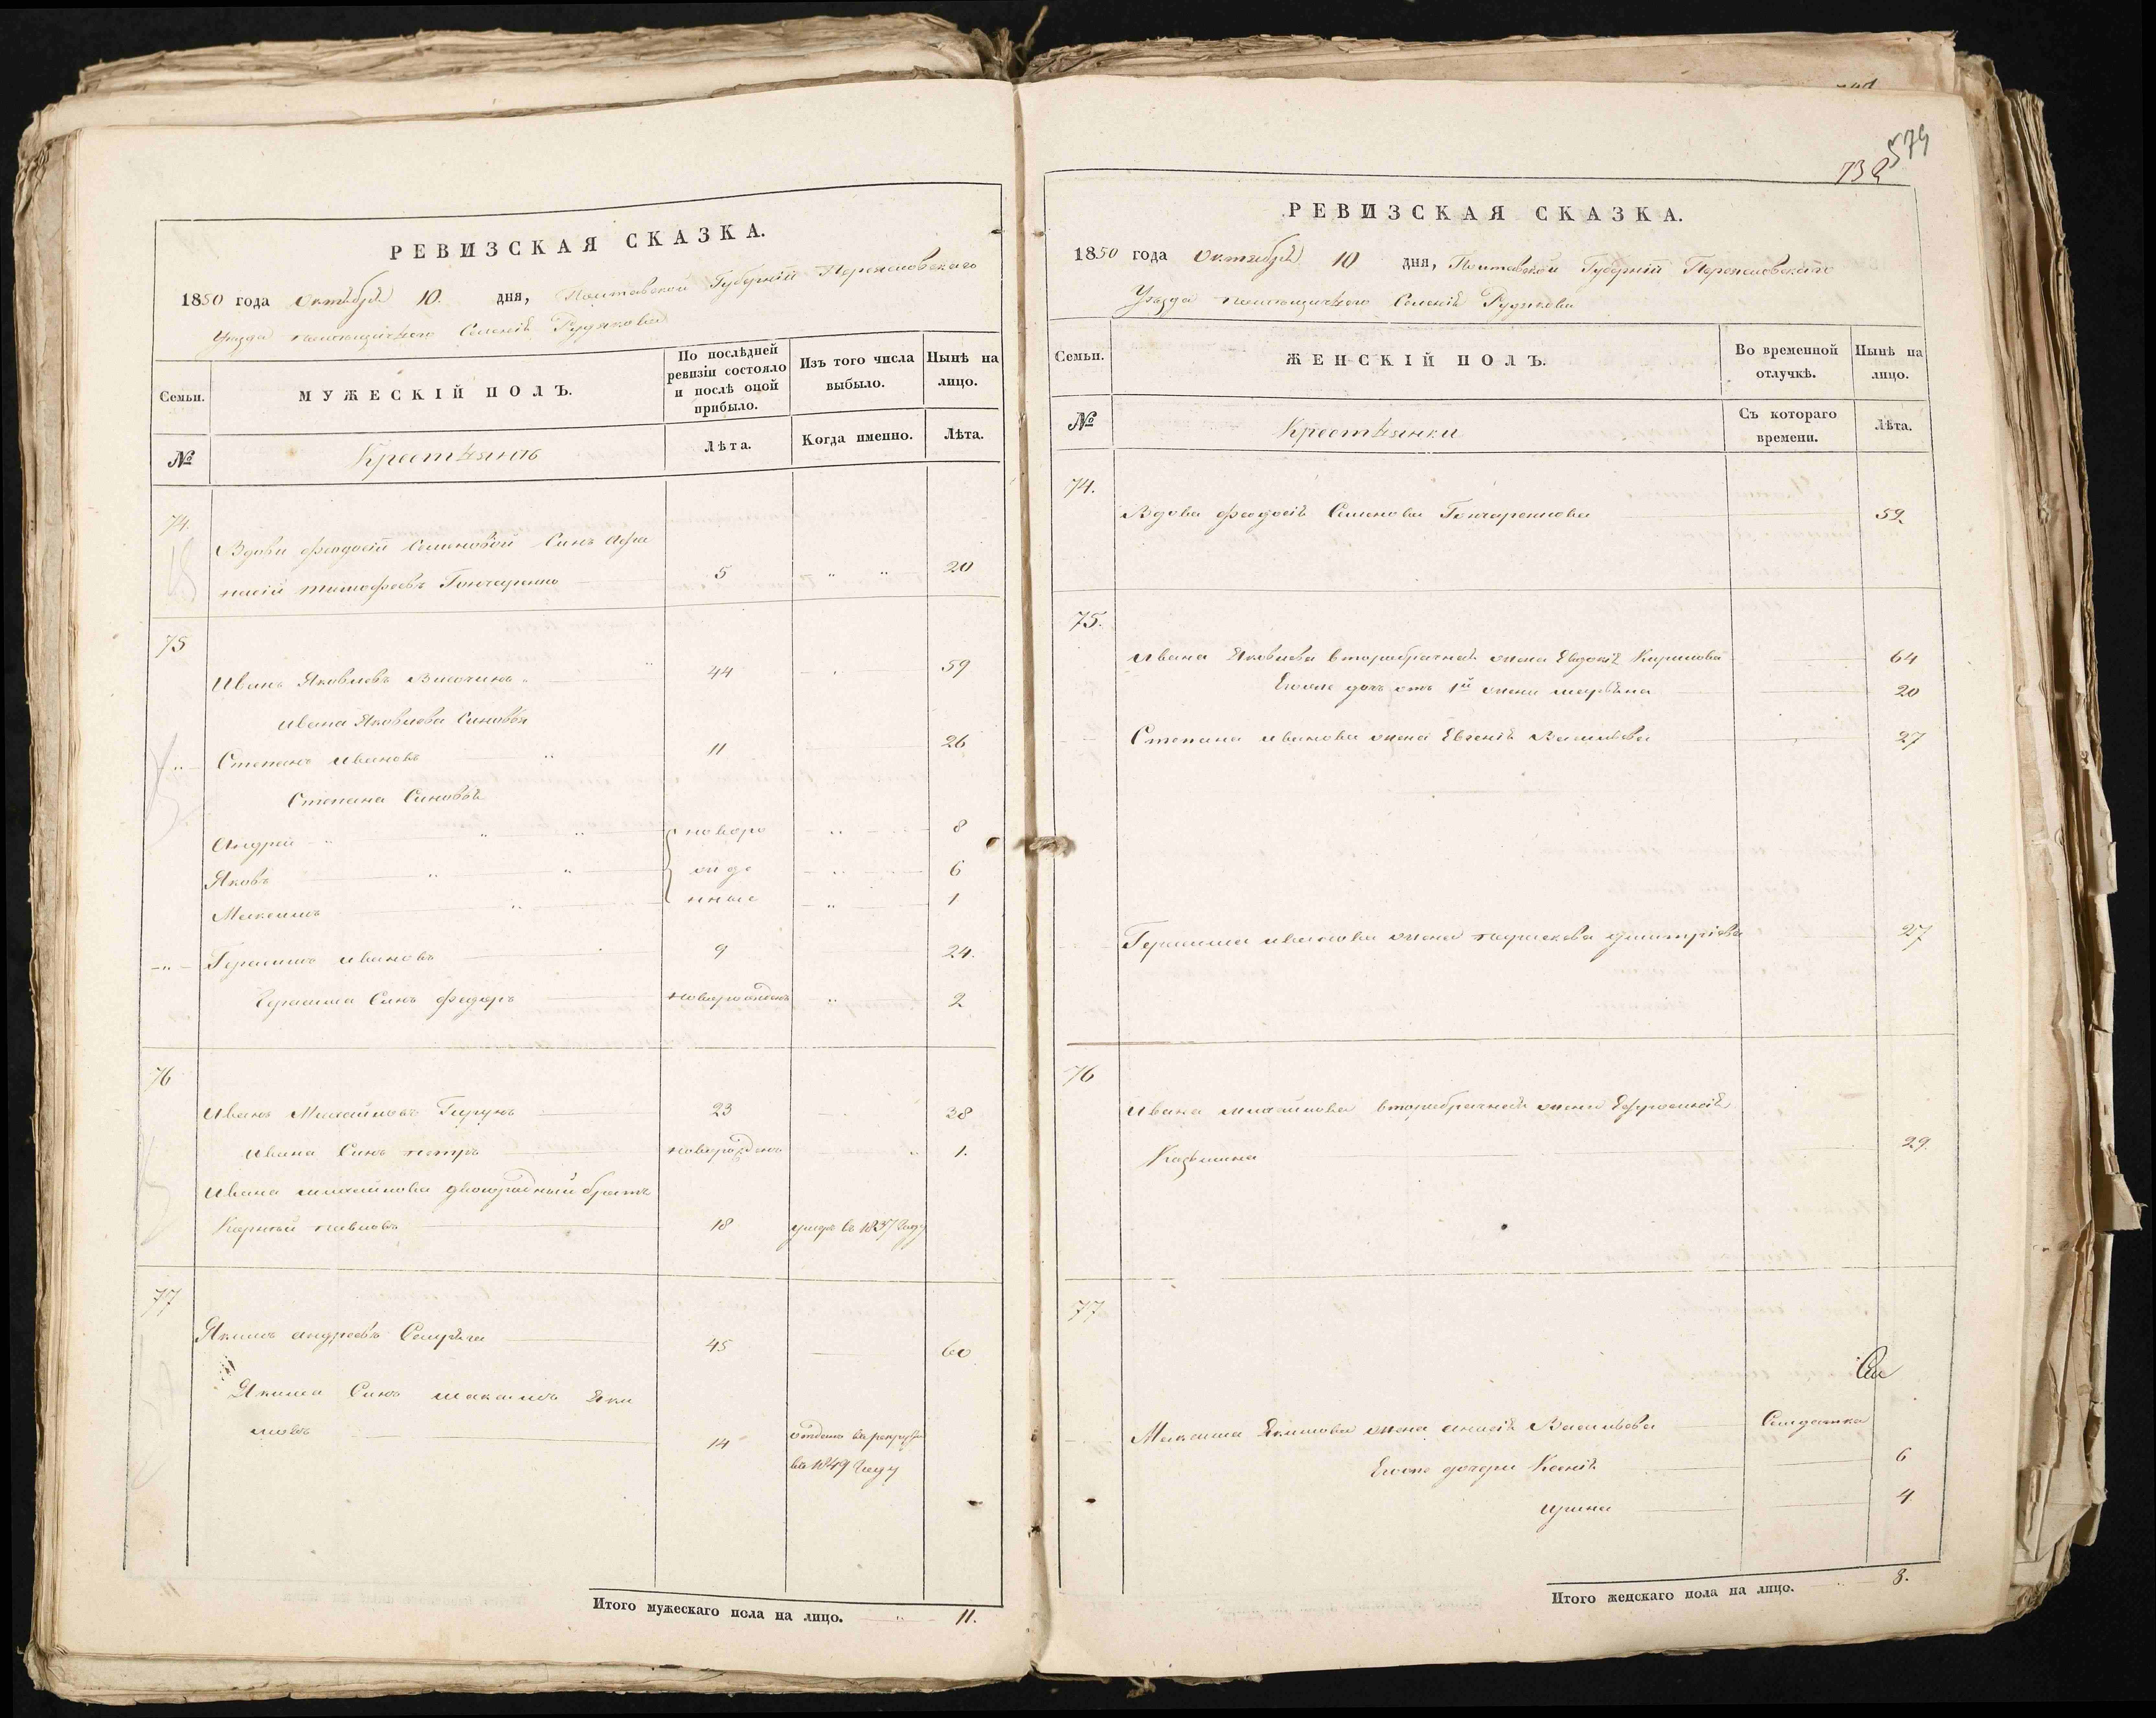 РЕВИЗСКАЯ СКАЗКА.
1850 года Октября 10. дня, Полтавской Губерніи Переяловскаго
Уезда помѣщичьего Селенія Рудякова
Семьи.
МУЖЕСКІЙ ПОЛЪ.
По послѣдней ревизіи состояло и послѣ оной прибыло.
Изъ того числа выбыло.
Нынѣ на лицо.
№
Крестьянъ
Лѣта.
Когда именно.
Лѣта.
74.
Вдовы Феодосіи Семеновой Синъ Афа
насій Тимофеевъ Гончаренко 5 " " 20
75
Иванъ Яковлевъ 44 59
Ивана Яковлева Синовья
Степанъ Ивановъ 11 26
Степана Синовья
Андрей " " новоро 8
Яковъ " " жде 6
Максимъ " нные 1
Герасимъ Ивановъ 9 24.
Герасима Синъ Федоръ новорожденъ " 2
76
Иванъ Михайловъ 23 38
Ивана Синъ Петръ новорожденъ " 1.
Ивана Михайлова двоюродный братъ
Корнѣй Павловъ 18 умеръ въ 1837 Году
77
Якимъ Андреевъ 45 60
Якима Синъ Максимъ Яки
мовъ 14 отданъ въ рекруты
въ 1849 Году
Итого мужескаго пола на лицо. " 11.
574
732
РЕВИЗСКАЯ СКАЗКА.
1850 года Октября 10 дня, Полтавской Губерніи Переяловскаго
Уезда помѣщичьего Селенія Рудякова
Семьи.
ЖЕНСКІЙ ПОЛЪ.
Во временной отлучкѣ.
Нынѣ на лицо.
№
Крестьянки
Съ котораго времени.
Лѣта.
74.
Вдова Феодосія Семенова Гончаренкова 59
75.
Ивана Яковлева второбрачная жена Евдокія Кирилова 64
Егоже дочь отъ 1й жены Марѣна 20
Степана Иванова жена Евгенія Васильева 27
Герасима Иванова жена Параскева Дмитріева 27
76
Ивана Михайлова второбрачная жена Ефросинія
Кузьмина 29.
77
Максима Якимова жена Анисія Васильева Солдатка
Егоже дочери Ксенія 6
Ирина 4
Итого женскаго пола на лицо. 8.